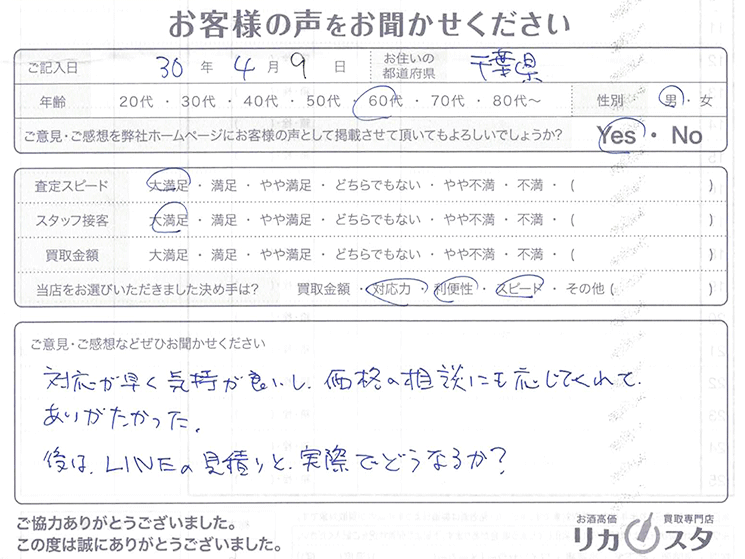 お客様の声をお聞かせください
ご記入日 30 年 4 月 9 日 お住いの都道府県 千葉県
年齢 20代 ・ 30代 ・ 40代 ・ 50代 ・ 60代 ・ 70代 ・ 80代～ 性別 男 ・ 女
ご意見・ご感想を弊社ホームページにお客様の声として掲載させて頂いてもよろしいでしょうか? Yes ・ No
査定スピード 大満足 ・ 満足 ・ やや満足 ・ どちらでもない ・ やや不満 ・ 不満 ・ ( )
スタッフ接客 大満足 ・ 満足 ・ やや満足 ・ どちらでもない ・ やや不満 ・ 不満 ・ ( )
買取金額 大満足 ・ 満足 ・ やや満足 ・ どちらでもない ・ やや不満 ・ 不満 ・ ( )
当店をお選びいただきました決め手は? 買取金額 ・ 対応力 ・ 利便性 ・ スピード ・ その他 ( )
ご意見・ご感想などぜひお聞かせください
対応が早く気持が良いし、価格の相談にも応じてくれて、
ありがたかった。
後は、LINEの見積りと、実際でどうなるか?
ご協力ありがとうございました。
この度は誠にありがとうございました。
お酒高価 買取専門店
リカスタ